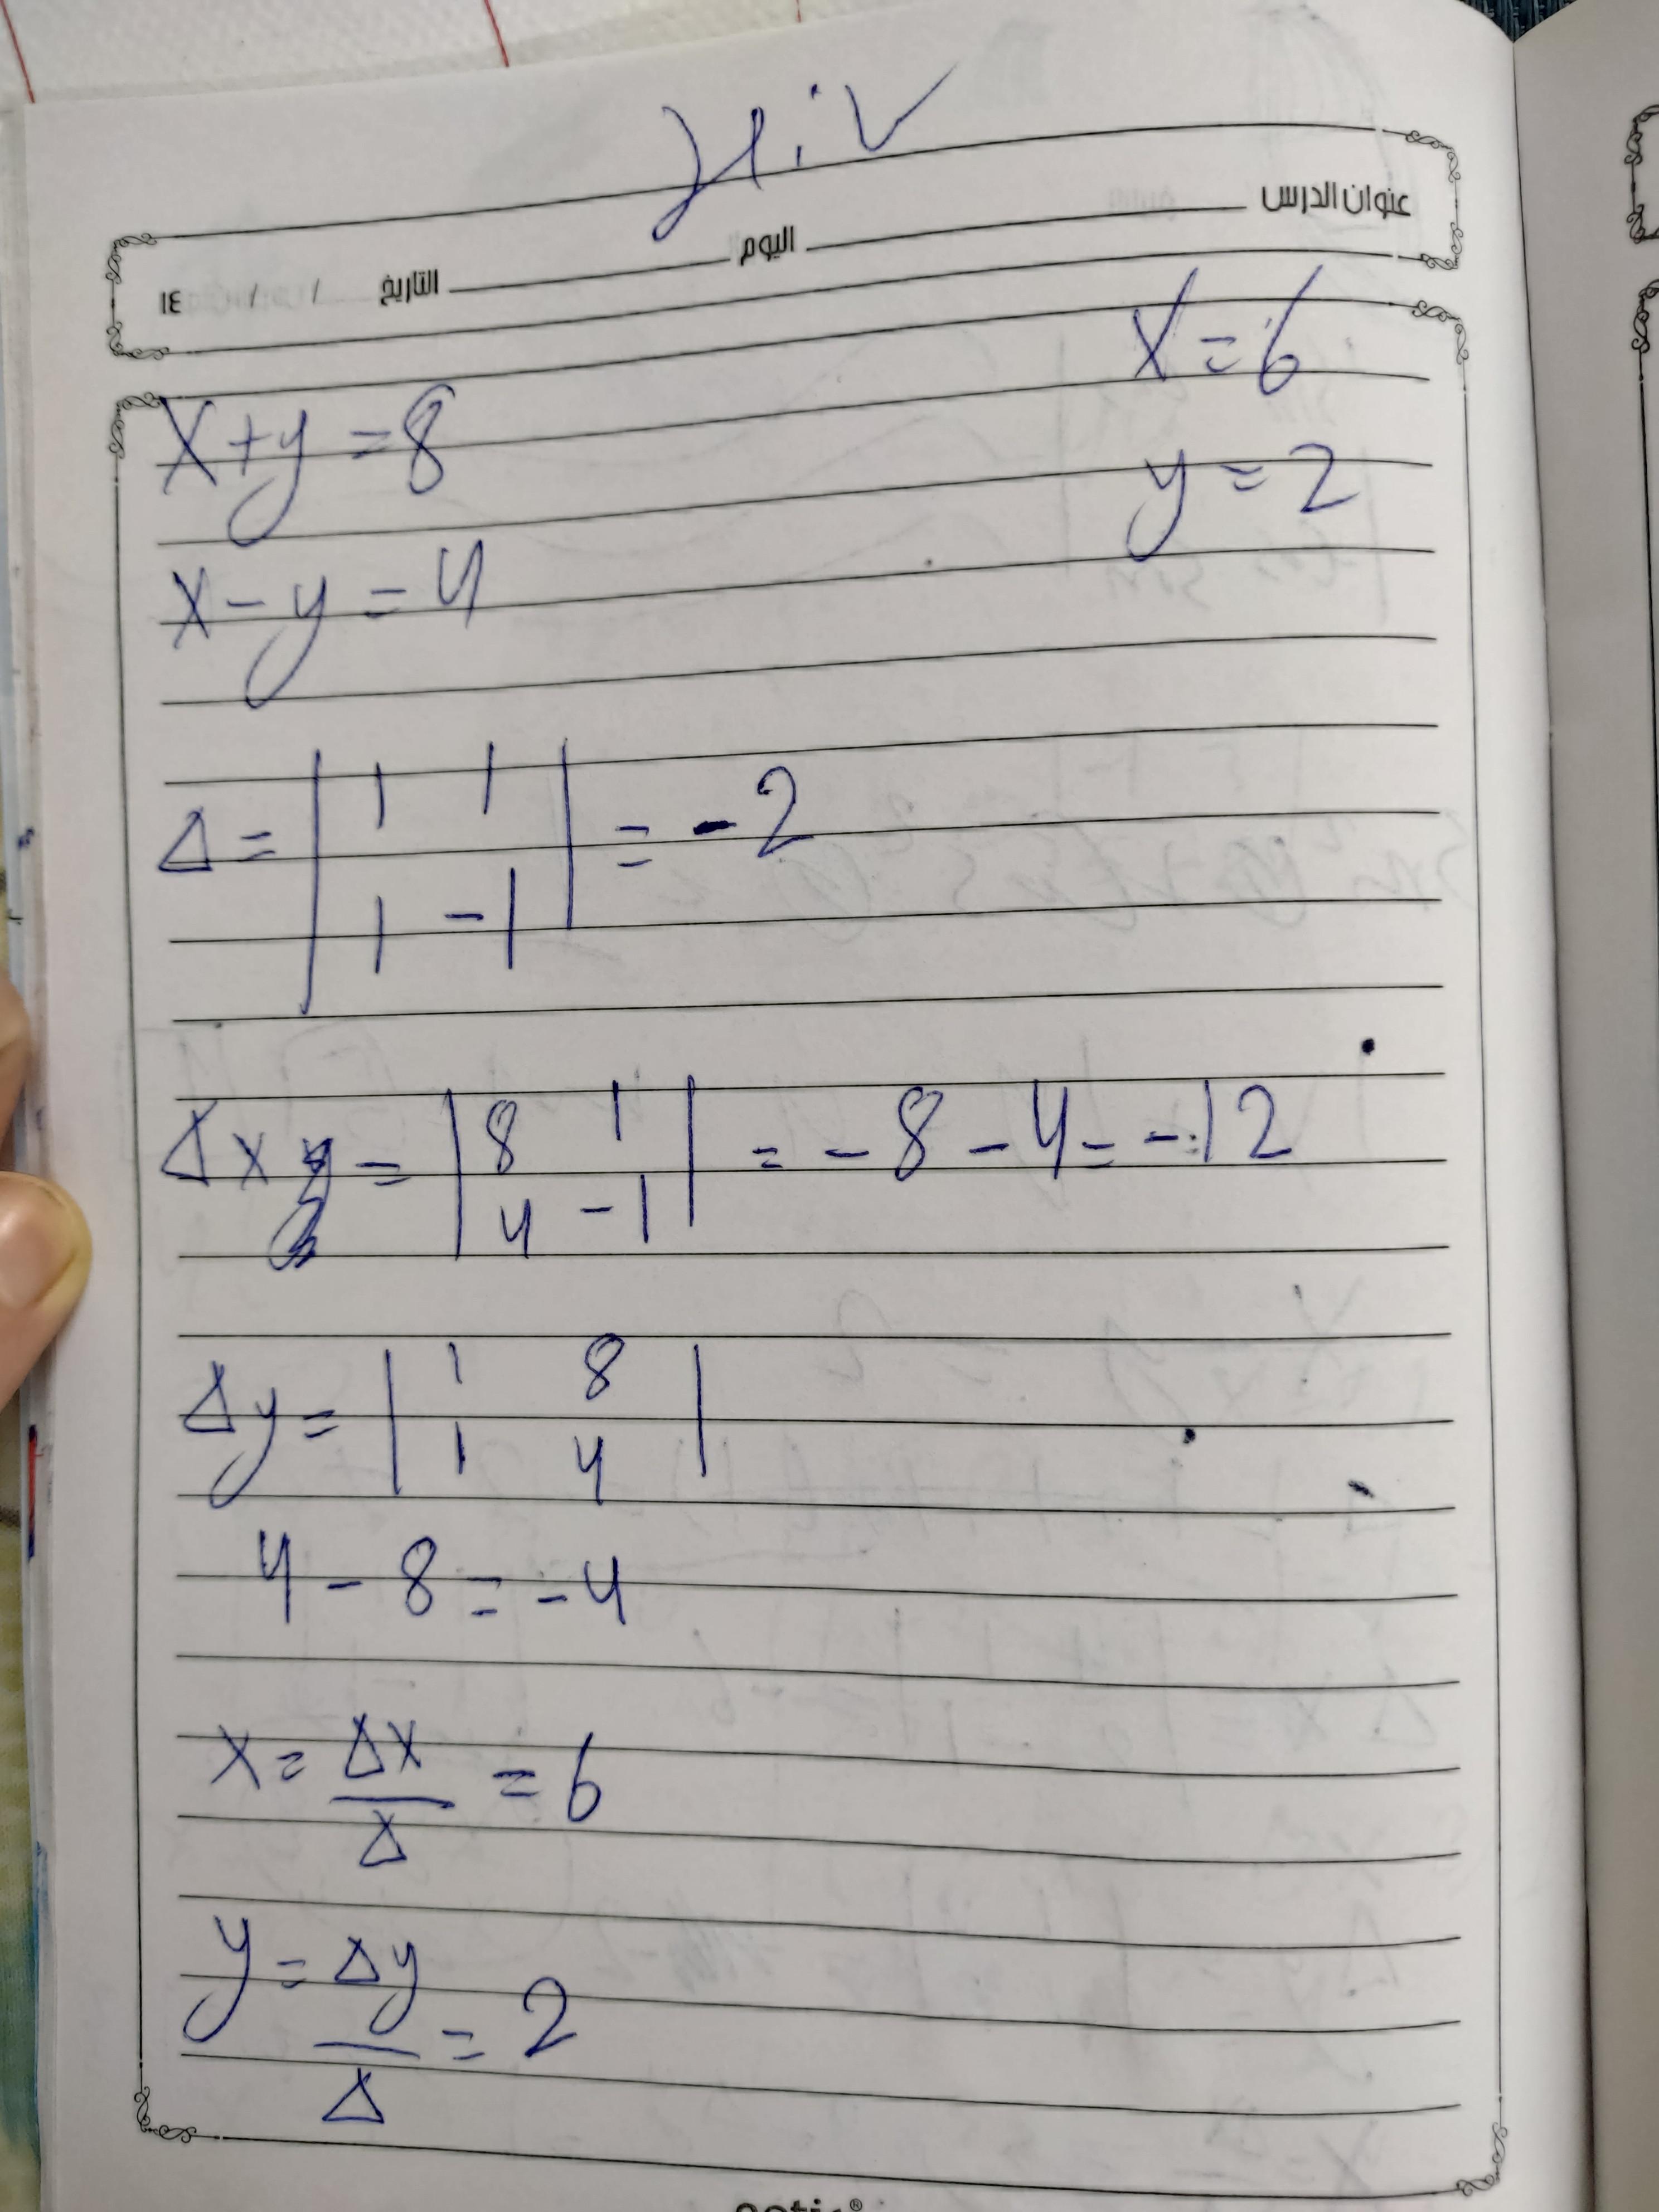 عنوان الدرس
اليوم
التاريخ / / ١٤
x = 6
x + y = 8
y = 2
x - y = 4
Δ = | 1 1 | = -2
| 1 -1 |
Δx = | 8 1 | = -8 - 4 = -12
| 4 -1 |
Δy = | 1 8 |
| 1 4 |
4 - 8 = -4
x = Δx / Δ = 6
y = Δy / Δ = 2